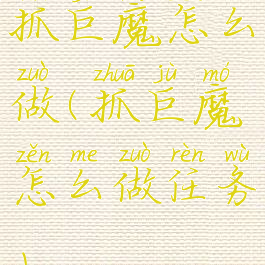 抓巨魔怎么
zuò zhuā jù mó
做(抓巨魔
zěn me zuò rèn wù
怎么做任务
)